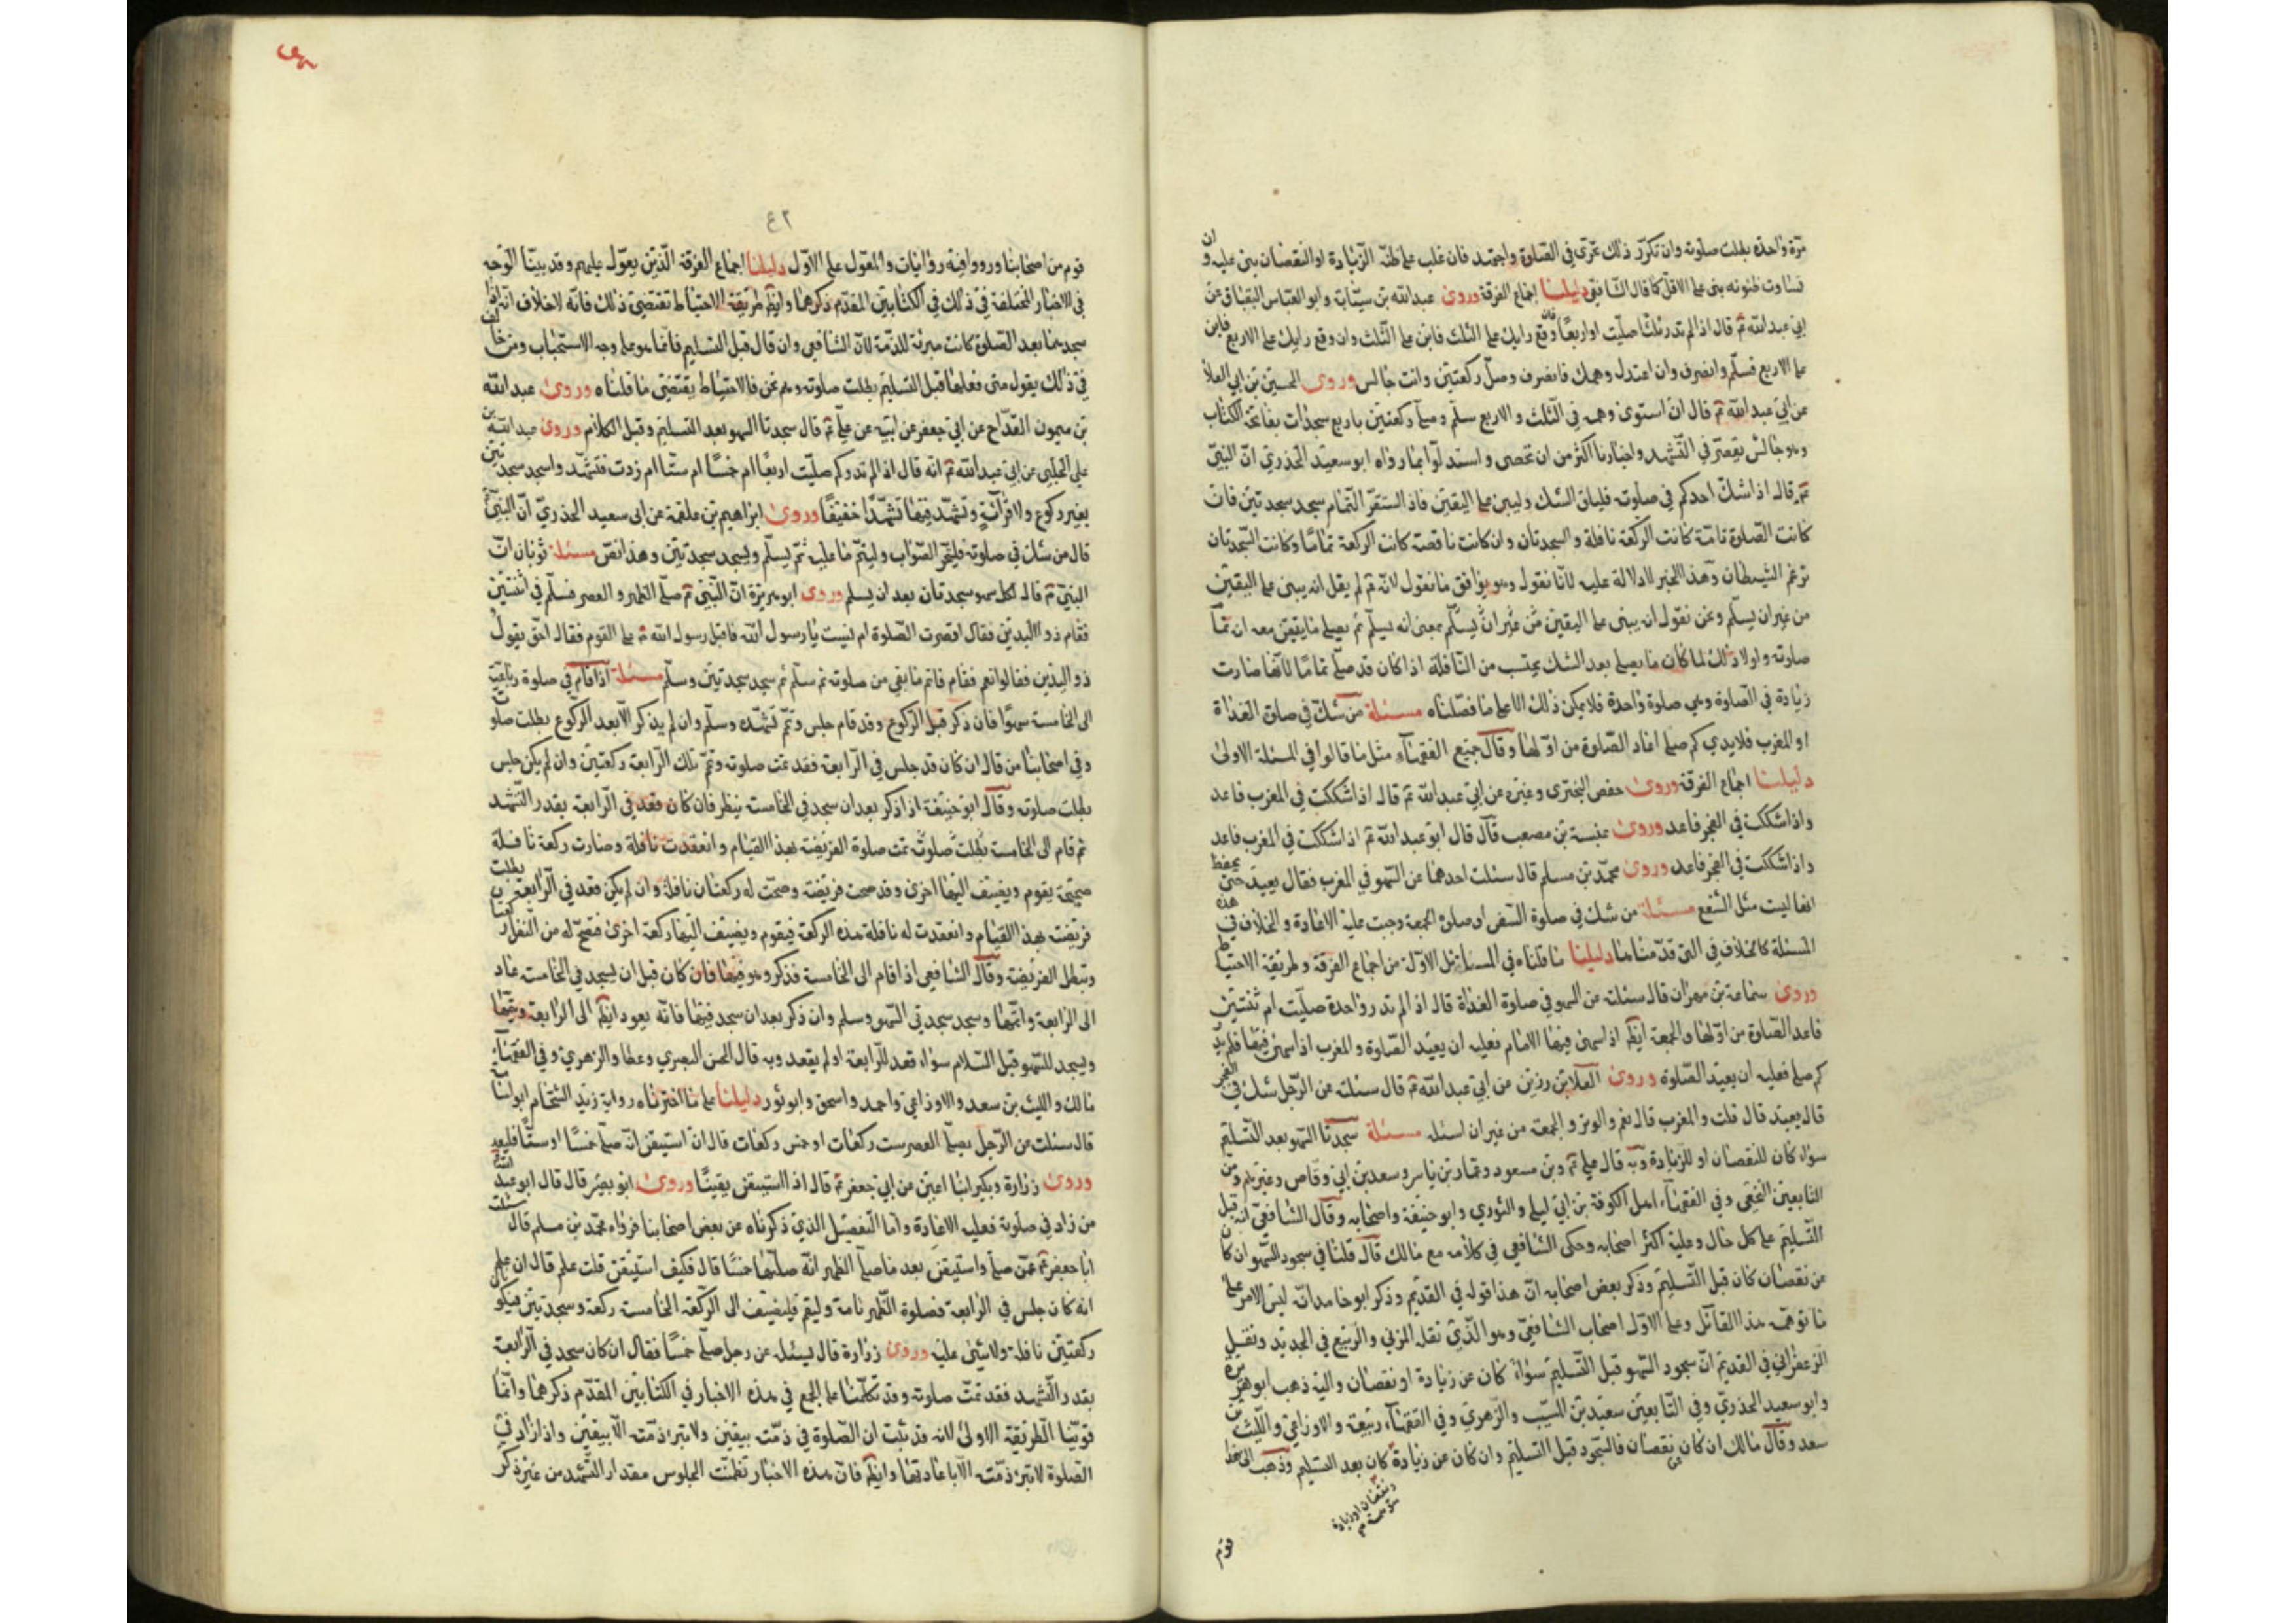 مرة واحدة بطلت صلوته وان تكرر ذلك تحرى في الصلوة واجتهد فان غلب على ظنه الزيادة او النقصان بنى عليه وان
تساوت ظنونه بنى على الاقل كما قال الشافعي دليلنا اجماع الفرقة وروى عبد الله بن سيابة وابو العباس البقباق عن
ابي عبد الله ع قال اذا لم تدر ثلثا صليت او اربعا ووقع رايك على الثلث فابن على الثلث وان وقع رايك على الاربع فابن
على الاربع فسلم وانصرف وان اعتدل وهمك فانصرف وصل ركعتين وانت جالس وروى الحسين بن ابي العلا
عن ابي عبد الله ع قال ان استوى وهمه في الثلث والاربع سلم وصلى ركعتين باربع سجدات بفاتحة الكتاب
وهو جالس يقصر في التشهد واخبارنا اكثر من ان تحصى واستدلوا بما رواه ابو سعيد الخدري ان النبي
ع قال اذا شك احدكم في صلوته فليلق الشك وليبن على اليقين فاذا استقر التمام سجد سجدتين فان
كانت الصلوة تامة كانت الركعة نافلة والسجدتان وان كانت ناقصة كانت الركعة تماما وكانت السجدتان
ترغم الشيطان وهذا الخبر لا دلالة عليه لانا نقول وهو يوافق ما نقول لانه ع لم يقل انه يبنى على اليقين
من غير ان يسلم ونحن نقول انه يبنى على اليقين من غير ان يسلم بمعنى انه يسلم ثم يصلي ما يتيقن معه ان تما
صلوته ولولا ذلك لما كان ما يصلي بعد الشك يحتسب من النافلة اذا كان قد صلى تماما لانها صارت
زيادة في الصلوة وهي صلوة واحدة فلا يمكن ذلك الا على ما فصلناه مسئلة من شك في صلوة الغداة
او المغرب فلا يدري كم صلى اعاد الصلوة من اولها وقال جميع الفقهاء مثل ما قالوا في المسئلة الاولى
دليلنا اجماع الفرقة وروى حفص البختري وغيره عن ابي عبد الله ع قال اذا شككت في المغرب فاعد
واذا شككت في الفجر فاعد وروى عنبسة بن مصعب قال قال ابو عبد الله ع اذا شككت في المغرب فاعد
واذا شككت في الفجر فاعد وروى محمد بن مسلم قال سئلت احدهما عن السهو في المغرب فقال يعيد حتى يحفظ
انها ليست مثل الشفع مسئلة من شك في صلوة السفر او صلوة الجمعة وجبت عليه الاعادة والخلاف في هذه
المسئلة كالخلاف في التي قدمناها دليلنا ما قلناه في المسائل الاولة من اجماع الفرقة وطريقة الاحتياط
وروى سماعة بن مهران قال سئلته عن السهو في صلوة الغداة قال اذا لم تدر واحدة صليت ام ثنتين
فاعد الصلوة من اولها والجمعة ايضا اذا سهى فيها الامام فعليه ان يعيد الصلوة والمغرب اذا سهى فيها فلم يدر
كم صلى فعليه ان يعيد الصلوة وروى العلا بن رزين عن ابي عبد الله ع قال سئلته عن الرجل شك في الفجر
قال يعيد قال قلت والمغرب قال نعم والوتر والجمعة من غير ان اسئله مسئلة سجدتا السهو بعد التسليم
سواء كان للنقصان او للزيادة وبه قال علي ع وبن مسعود وعمار بن ياسر وسعد بن ابي وقاص وغيرهم ومن
التابعين النخعي وفي الفقهاء اهل الكوفة بن ابي ليلى والثوري وابو حنيفة واصحابه وقال الشافعي انه قبل
التسليم على كل حال وعليه اكثر اصحابه وحكى الشافعي في كلامه مع مالك قال قلنا في سجود السهو ان كان
عن نقصان كان قبل التسليم وذكر بعض اصحابه ان هذا قوله في القديم وذكر ابو حامد انه ليس الامر على
ما توهمه هذا القائل وعلى الاول اصحاب الشافعي وهو الذي نقله المزني والربيع في الجديد ونقل
الزعفراني في القديم ان سجود السهو قبل التسليم سواء كان عن زيادة او نقصان واليه ذهب ابو هريرة
وابو سعيد الخدري وفي التابعين سعيد بن المسيب والزهري وفي الفقهاء ربيعة والاوزاعي والليث بن
سعد وقال مالك ان كان عن نقصان فالسجود قبل التسليم وان كان عن زيادة كان بعد التسليم وذهب الى هذا
قوم
٤٢
قوم من اصحابنا ورووا فيه روايات والمعول على الاول دليلنا اجماع الفرقة الذين يعول عليهم وقد بينا الوجه
في الاخبار المختلفة في ذلك في الكتابين المقدم ذكرهما وايضا طريقة الاحتياط تقتضي ذلك فانه لا خلاف انه اذا
سجدهما بعد الصلوة كانت مبرئة للذمة لان الشافعي وان قال قبل التسليم فانما هو على وجه الاستحباب ومن خالف
في ذلك يقول متى فعلها قبل التسليم بطلت صلوته وهم نحن فالاحتياط يقتضي ما قلناه وروى عبد الله
بن ميمون القداح عن ابي جعفر عن ابيه عن علي ع قال سجدتا السهو بعد التسليم وقبل الكلام وروى عبد الله بن
علي الحلبي عن ابي عبد الله ع انه قال اذا لم تدر كم صليت اربعا ام خمسا ام ستا ام زدت فتشهد واسجد سجدتين
بغير ركوع ولا قراءة وتشهد فيها تشهدا خفيفا وروى ابراهيم بن علقمة عن ابي سعيد الخدري ان النبي
قال من شك في صلوته فليتحر الصواب وليتم ما عليه ثم يسلم ويسجد سجدتين وهذا نص مسئلة ثوبان ان
النبي ع قال لكل سهو سجدتان بعد ان يسلم وروى ابو هريرة ان النبي ع صلى الظهر والعصر فسلم في اثنتين
فقام ذو اليدين فقال اقصرت الصلوة ام نسيت يا رسول الله فاقبل رسول الله ع على القوم فقال احق يقول
ذو اليدين فقالوا نعم فقام فاتم ما بقي من صلوته ثم سلم ثم سجد سجدتين وسلم مسئلة اذا قام في صلوة رباعية
الى الخامسة سهوا فان ذكر قبل الركوع وقد قام جلس وتم تشهده وسلم وان لم يذكر الا بعد الركوع بطلت صلوته
وفي اصحابنا من قال ان كان قد جلس في الرابعة فقد تمت صلوته وتم تلك الرابعة ركعتين وان لم يكن جلس
بطلت صلوته وقال ابو حنيفة اذا ذكر بعد ان سجد في الخامسة ينظر فان كان قعد في الرابعة بقدر التشهد
ثم قام الى الخامسة بطلت صلوته تمت صلوة الفريضة بهذا القيام وانعقدت نافلة وصارت ركعة نافلة
صحيحة يقوم ويضيف اليها اخرى وقد صحت فريضته وصحت له ركعتان نافلة وان لم يكن قعد في الرابعة بطلت
فريضته بهذا القيام وانعقدت له نافلة هذه الركعة فيقوم ويضيف اليها ركعة اخرى فتصح له من النفل ركعتان
وتبطل الفريضة وقال الشافعي اذا قام الى الخامسة فذكر وهو فيها فان كان قبل ان يسجد في الخامسة عاد
الى الرابعة واتمها وسجد سجدتي السهو وسلم وان ذكر بعد ان سجد فيها فانه يعود ايضا الى الرابعة ويتمها
ويسجد للسهو قبل السلام سواء قعد للرابعة او لم يقعد وبه قال الحسن البصري وعطا والزهري وفي الفقهاء
مالك والليث بن سعد والاوزاعي واحمد واسحق وابو ثور دليلنا على ما اخترناه رواية زيد الشحام ابو اسامة
قال سئلت عن الرجل يصلي العصر ست ركعات او خمس ركعات قال ان استيقن انه صلى خمسا او ستا فليعد
وروى زرارة وبكير ابنا اعين عن ابي جعفر ع قال اذا استيقن يقينا وروى ابو بصير قال قال ابو عبد الله
من زاد في صلوته فعليه الاعادة واما التفصيل الذي ذكرناه عن بعض اصحابنا فرواه محمد بن مسلم قال سئلت
ابا جعفر ع عمن صلى واستيقن بعد ما صلى الظهر انه صليها خمسا قال فكيف استيقن قلت علم قال ان علم
انه كان جلس في الرابعة فصلوة الظهر تامة وليقم فليضف الى الركعة الخامسة ركعة وسجدتين فيكون
ركعتين نافلة ولا شئ عليه وروى زرارة قال يسئله عن رجل صلى خمسا فقال ان كان سجد في الرابعة
بقدر التشهد فقد تمت صلوته وقد تكلمنا على الجمع في هذه الاخبار في الكتابين المقدم ذكرهما وانما
قوينا الطريقة الاولى لانه قد ثبت ان الصلوة في ذمته بيقين ولا تبرء ذمته الا بيقين واذا زاد في
الصلوة لا تبرء ذمته الا باعادتها وايضا فان هذه الاخبار تضمنت الجلوس مقدار التشهد من غير ذكر